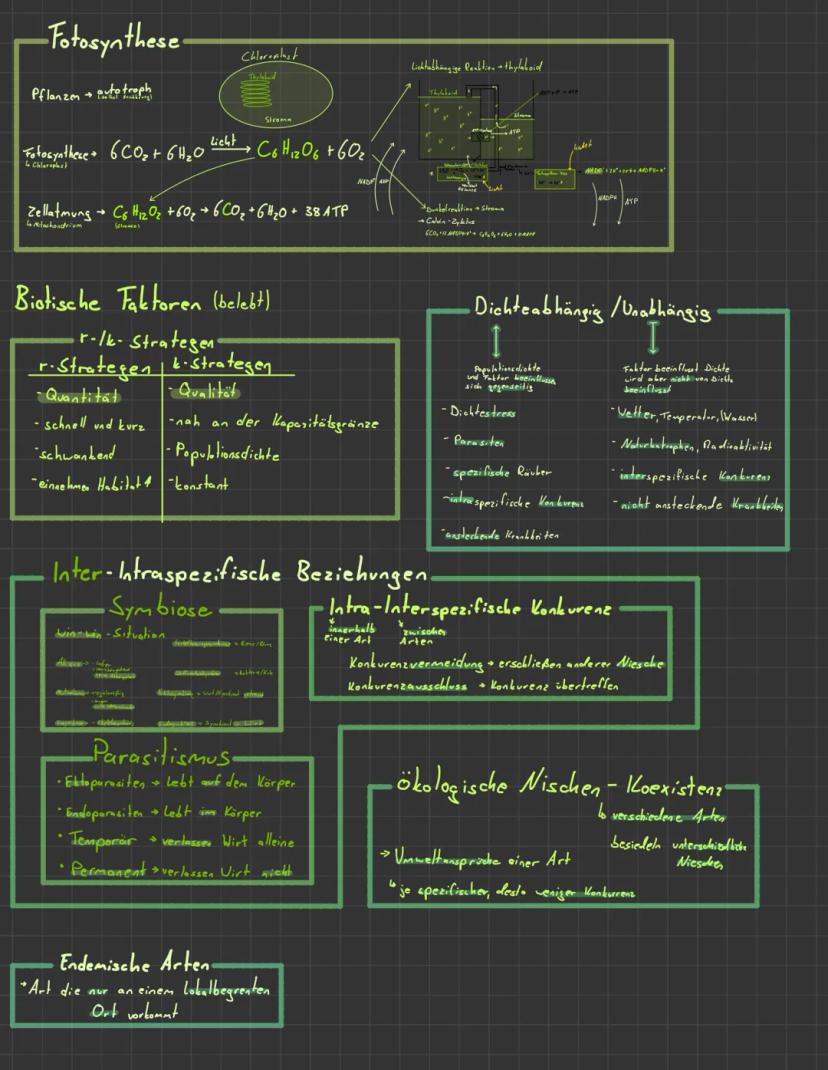 Fotosynthese
Chloroplast
Thylakoid
Stroma
Pflanzen → autotroph
Fotosynthese → 6CO₂ + 6H₂O Licht → C₆H₁₂O₆ + 6O₂
↳ Chloroplast
Zellatmung → C₆H₁₂O₂ + 6O₂ → 6CO₂ + 6H₂O + 38 ATP
↳ Mitochondrium
(Stroma)
NADP⁺ ATP
Lichtabhängige Reaktion → thylakoid
Thylakoid
Stroma
→ATP
Licht
Licht
NADPH ATP
Dunkelreaktion → Stroma
→ Calvin-Zyklus
Biotische Faktoren (belebt)
r-/k-Strategen
r-Strategen k-Strategen
- Quantität - Qualität
- schnell und kurz - nah an der Kapazitätsgränze
- schwankend - Populationsdichte
- einnehmen Habitat - konstant
Dichteabhängig / Unabhängig
Populationsdichte
und Faktor beeinflussn
sich gegenseitig
- Dichtestress
- Parasiten
- spezifische Räuber
- intraspezifische Konkurenz
- ansteckende Krankheiten
Faktor beeinflusst Dichte
wird aber nicht von Dichte
beeinflusst
- Wetter, Temperatur, (Wasser)
- Naturkatrophen, Radioaktivität
- interspezifische Konkurenz
- nicht ansteckende Krankheiten
Inter-Intraspezifische Beziehungen
Symbiose
win-win-Situation
Intra-Interspezifische Konkurenz
innerhalb
einer Art
zwischen
Arten
Konkurenzvermeidung → erschließen anderer Niesche
Konkurenzausschluss → Konkurenz übertreffen
Parasitismus
• Ektoparasiten → Lebt auf dem Körper
• Endoparasiten → Lebt im Körper
• Temporär → verlassen Wirt alleine
• Permanent → verlassen Wirt nicht
ökologische Nischen - Koexistenz
↳ verschiedene Arten
besiedeln unterschiedliche
Nieschen
→ Umweltansprüche einer Art
↳ je spezifischer, desto weniger Konkurenz
Endemische Arten
→ Art die nur an einem lokalbegrenten
Ort vorkommt